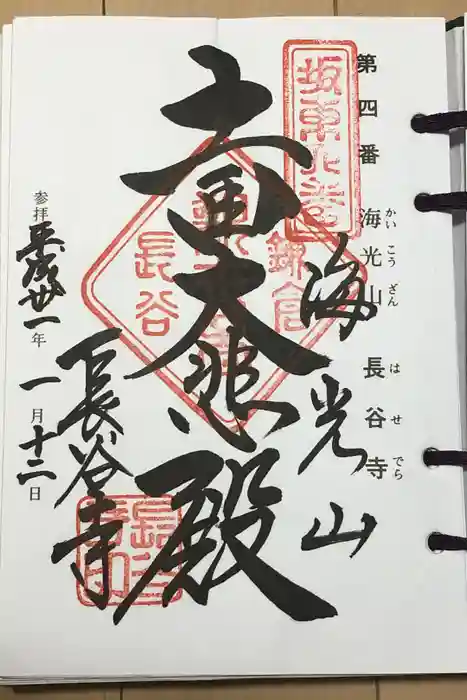 第四番 海光山 長谷寺
かいこうざん はせでら
坂東
海光山
鎌倉
長谷
十一面大悲殿
長谷寺
参拝 平成廿一年一月十二日